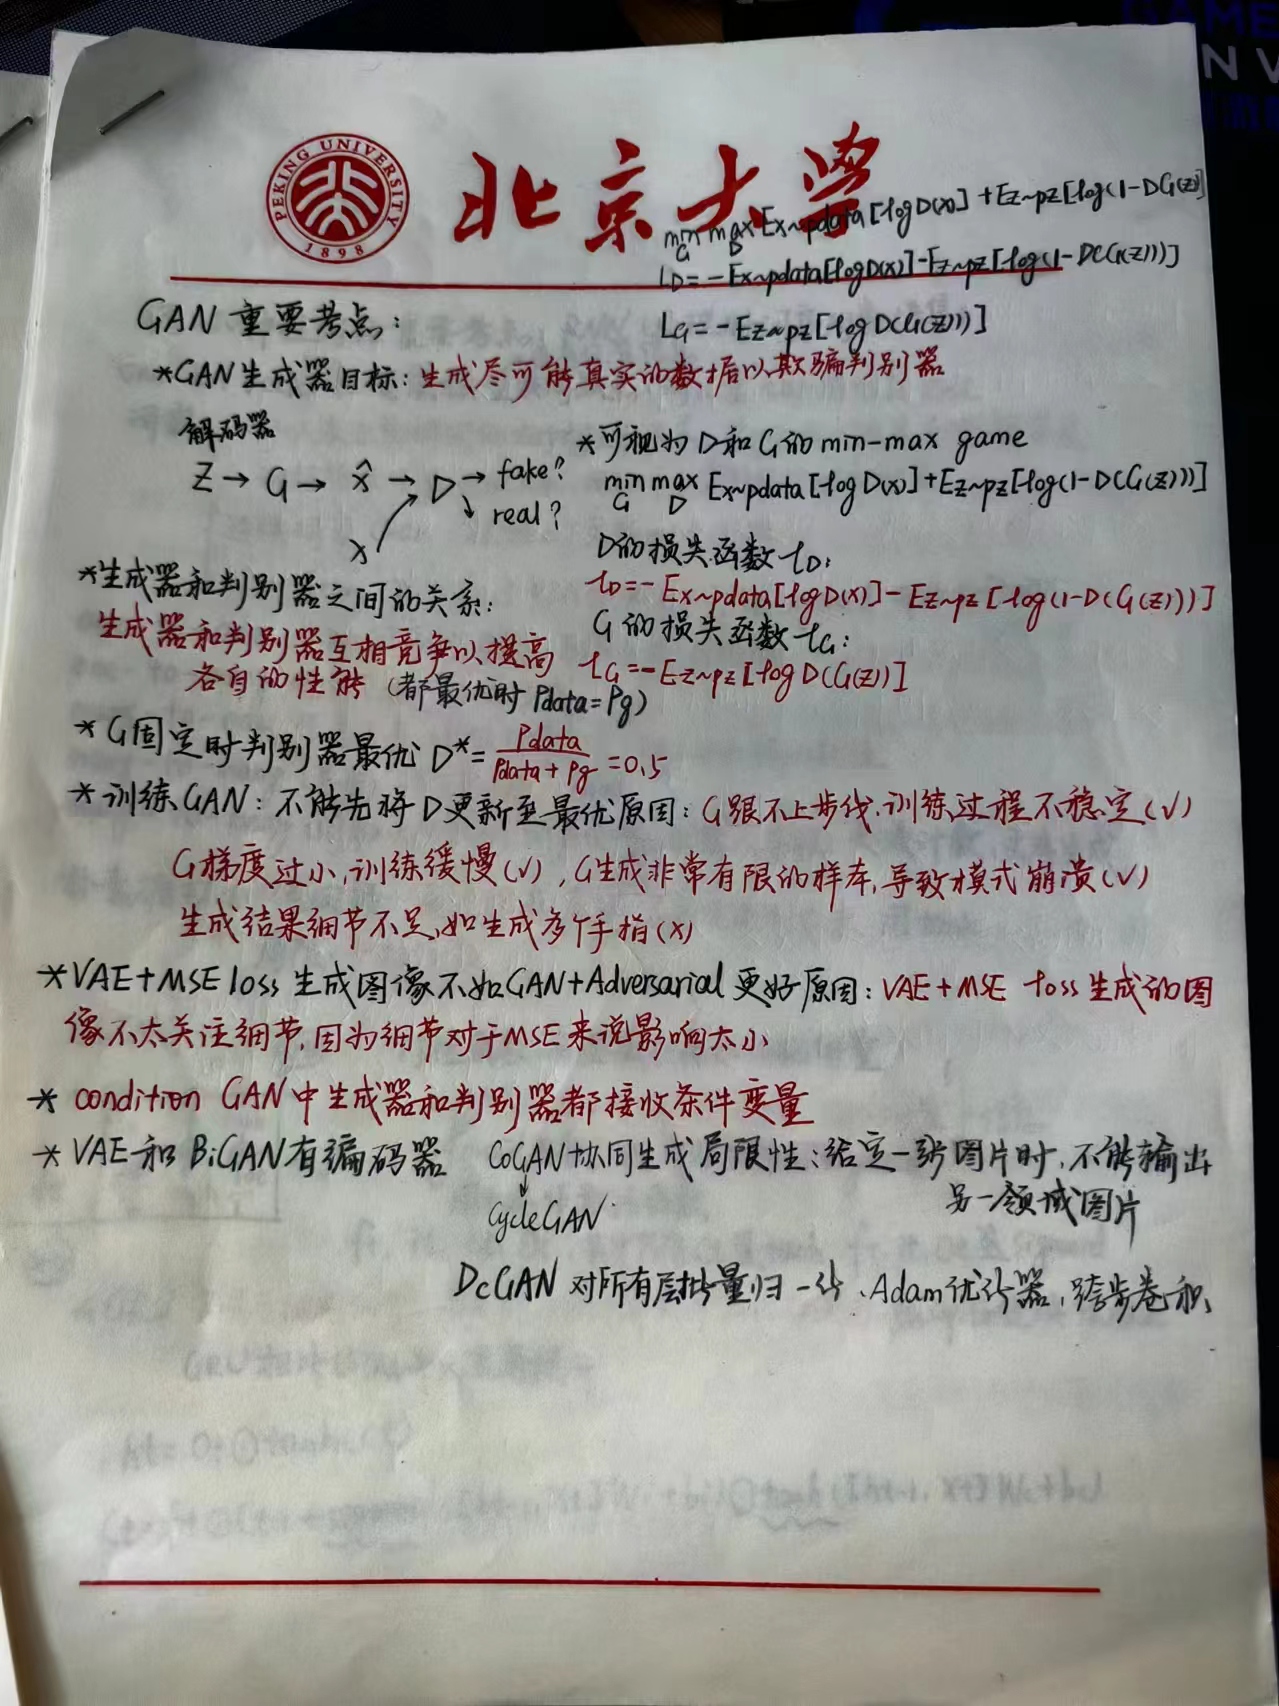 GAME
N V
PEKING UNIVERSITY
1898
北京大学
min max Ex~pdata[logD(x)] + Ez~pz[log(1-DG(z)]
G D
LD = -Ex~pdata[logD(x)] - Ez~pz[log(1-D(G(z)))]
LG = -Ez~pz[log D(G(z))]
GAN 重要考点:
*GAN生成器目标: 生成尽可能真实的数据以欺骗判别器
解码器
Z → G → x̂ → D → fake?
real?
x
*可视为 D和G的 min-max game
min max Ex~pdata[logD(x)] + Ez~pz[log(1-D(G(z)))]
G D
D的损失函数 LD:
LD = - Ex~pdata[logD(x)] - Ez~pz[log(1-D(G(z)))]
G的损失函数 LG:
LG = - Ez~pz[log D(G(z))]
*生成器和判别器之间的关系:
生成器和判别器互相竞争以提高
各自的性能 (都最优时 Pdata=Pg)
* G固定时判别器最优 D* = Pdata / Pdata + Pg = 0.5
* 训练GAN: 不能先将D更新至最优原因: G跟不上步伐,训练过程不稳定(√)
G梯度过小,训练缓慢(√), G生成非常有限的样本,导致模式崩溃(√)
生成结果细节不足,如生成多个手指(x)
*VAE+MSE loss 生成图像不如GAN+Adversarial 更好原因: VAE+MSE loss 生成的图
像不太关注细节,因为细节对于MSE来说影响太小
* condition GAN中生成器和判别器都接收条件变量
* VAE和BiGAN有编码器 CoGAN协同生成局限性: 给定一张图片时,不能输出
另一领域图片
CycleGAN
DcGAN 对所有层批量归一化、Adam优化器,跨步卷积